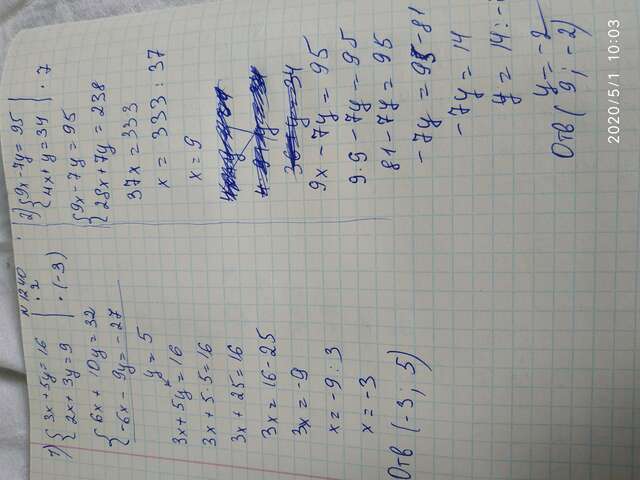 N 1240
1) { 3x + 5y = 16 | · 2
{ 2x + 3y = 9 | · (-3)
{ 6x + 10y = 32
{ -6x - 9y = -27
y = 5
3x + 5y = 16
3x + 5·5 = 16
3x + 25 = 16
3x = 16 - 25
3x = -9
x = -9 : 3
x = -3
Отв (-3; 5)
2) { 9x - 7y = 95
{ 4x + y = 34 | · 7
{ 9x - 7y = 95
{ 28x + 7y = 238
37x = 333
x = 333 : 37
x = 9
9x - 7y = 95
9·9 - 7y = 95
81 - 7y = 95
-7y = 95 - 81
-7y = 14
y = 14 : -
y = -2
Отв (9; -2)
2020/5/1 10:03